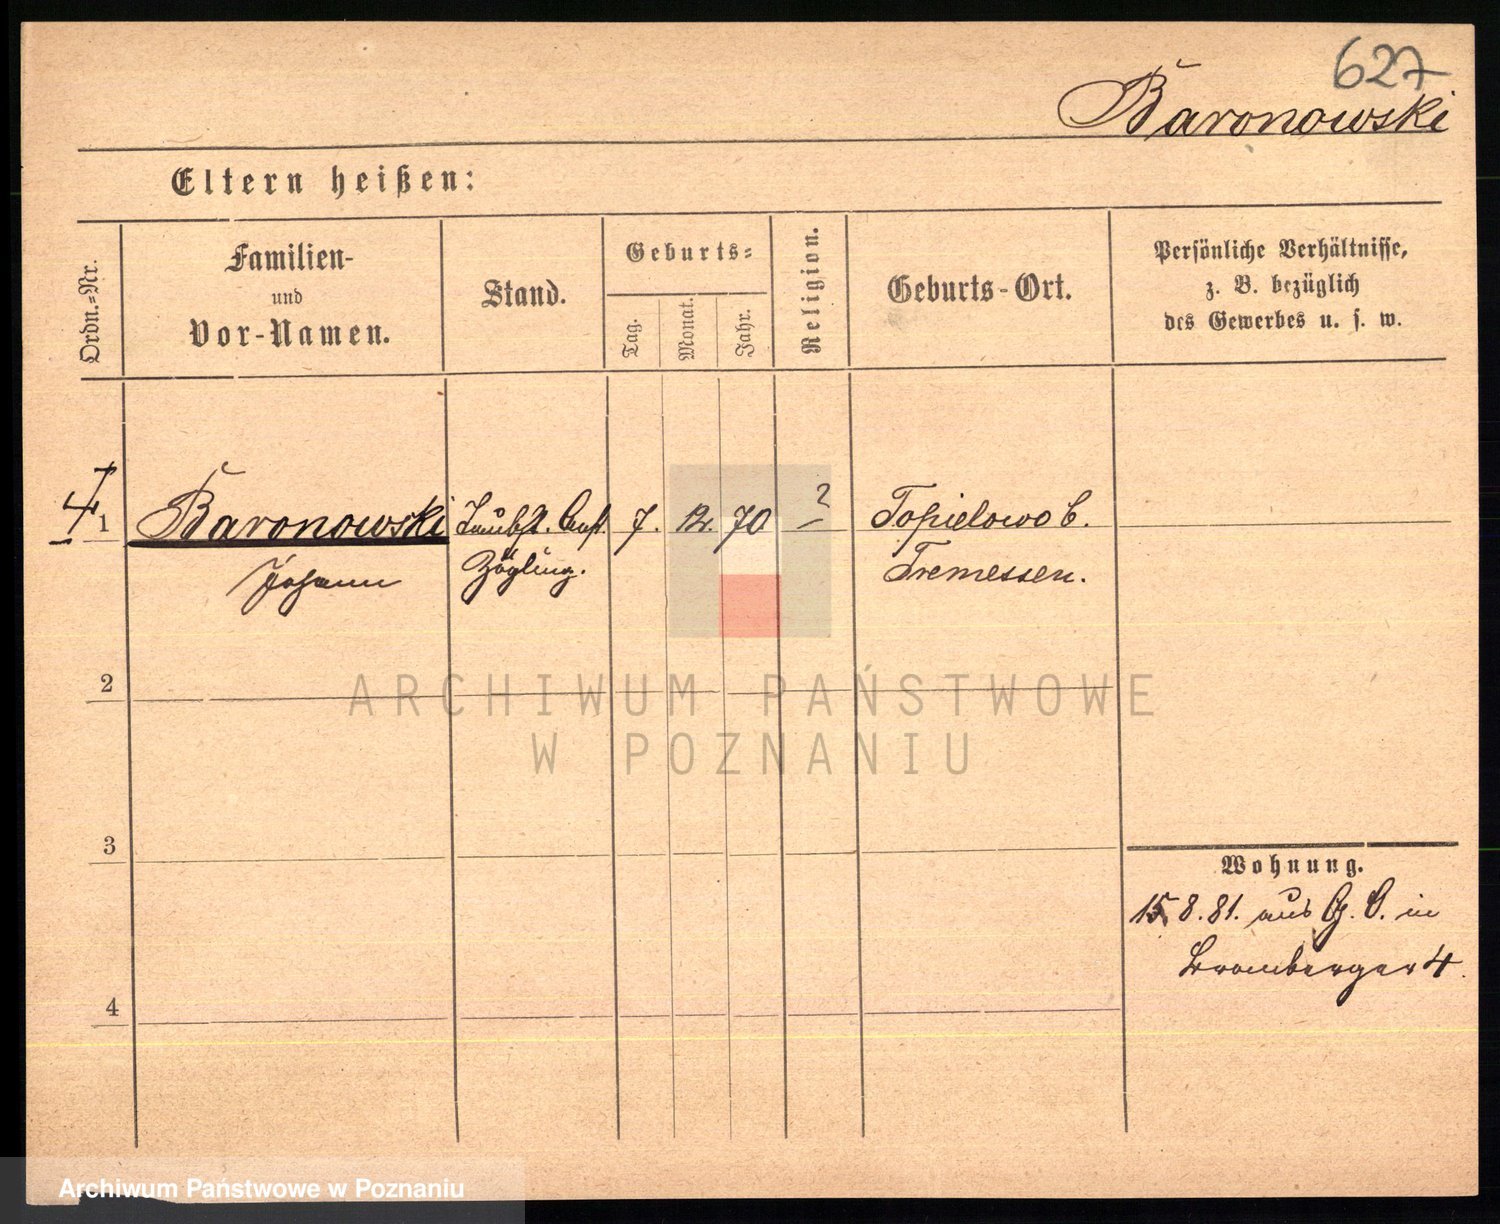 627
Baronowski
Eltern heißen:
Ordn.=Nr.
Familien-
und
Vor-Namen.
Stand.
Geburts=
Tag.
Monat.
Jahr.
Religion.
Geburts-Ort.
Persönliche Verhältnisse,
z. B. bezüglich
des Gewerbes u. s. w.
1 Baronowski Taubst. Anst. 7. 12. 70 ? Topielowo b.
Johann Zögling. Tremessen.
2
3
4
Wohnung.
15. 8. 81. aus G. O. in
Bromberger 4.
ARCHIWUM PAŃSTWOWE
W POZNANIU
Archiwum Państwowe w Poznaniu